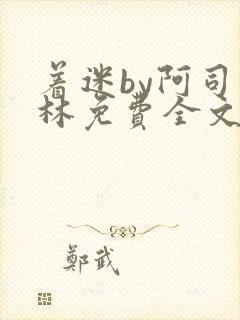 着迷by阿司
林免费全文
鄭武